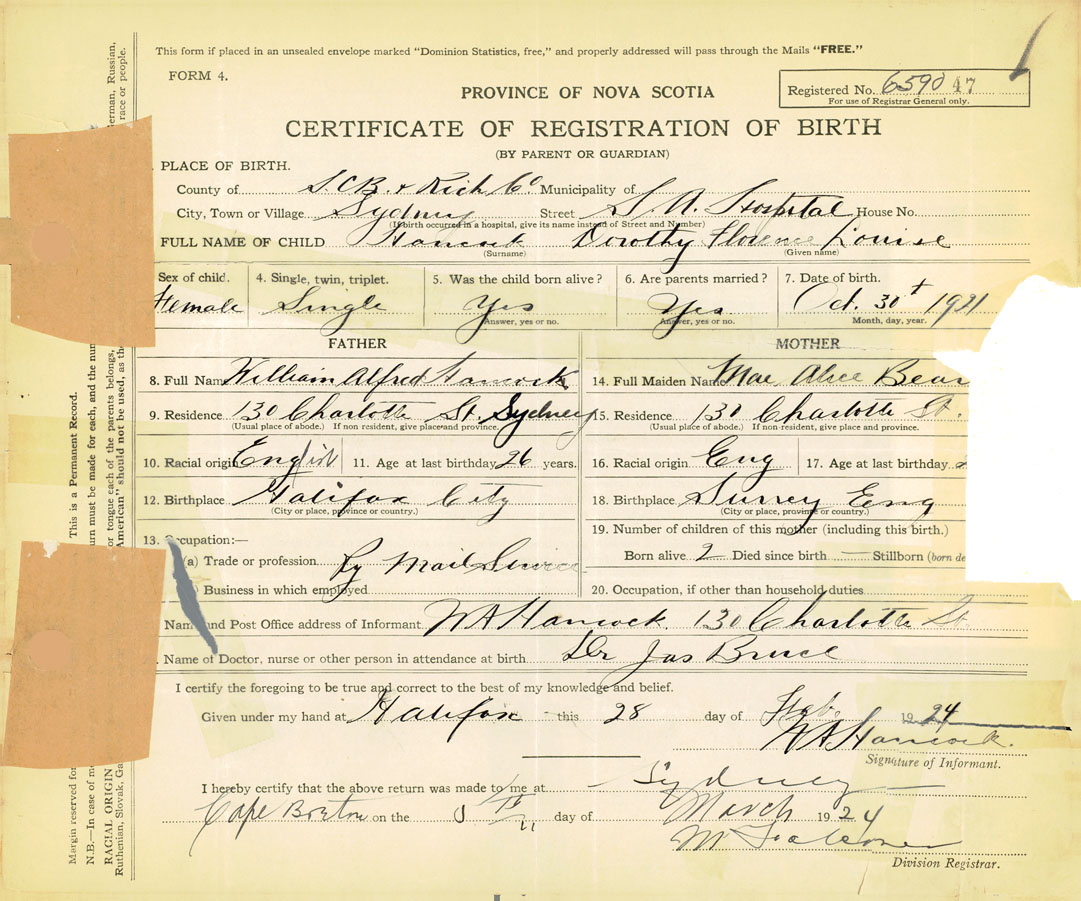 This form if placed in an unsealed envelope marked "Dominion Statistics, free," and properly addressed will pass through the Mails "FREE."
FORM 4.
Registered No. 6590 47
For use of Registrar General only.
PROVINCE OF NOVA SCOTIA
CERTIFICATE OF REGISTRATION OF BIRTH
(BY PARENT OR GUARDIAN)
. PLACE OF BIRTH.
County of S.C.B. & Rich Co Municipality of
City, Town or Village Sydney Street S. A. Hospital House No.
(If birth occurred in a hospital, give its name instead of Street and Number)
FULL NAME OF CHILD Hancock Dorothy Florence Louise
(Surname) (Given name)
Sex of child. 4. Single, twin, triplet. 5. Was the child born alive? 6. Are parents married? 7. Date of birth.
Female Single Yes Yes Oct. 30t 1921
Answer, yes or no. Answer, yes or no. Month, day, year.
FATHER MOTHER
8. Full Name William Alfred Hancock 14. Full Maiden Name Mae Alice Bear
9. Residence 130 Charlotte St. Sydney 15. Residence 130 Charlotte St.
(Usual place of abode.) If non resident, give place and province. (Usual place of abode.) If non resident, give place and province.
10. Racial origin English 11. Age at last birthday 26 years. 16. Racial origin Eng 17. Age at last birthday
12. Birthplace Halifax City 18. Birthplace Surrey Eng
(City or place, province or country.) (City or place, province or country.)
13. Occupation:— 19. Number of children of this mother (including this birth.)
(a) Trade or profession Ry Mail Service Born alive 2 Died since birth — Stillborn (born de
Business in which employed 20. Occupation, if other than household duties
Name and Post Office address of Informant W A Hancock 130 Charlotte St.
. Name of Doctor, nurse or other person in attendance at birth Dr Jas Bruce
I certify the foregoing to be true and correct to the best of my knowledge and belief.
Given under my hand at Halifax this 28 day of Feb. 1924
W A Hancock.
Signature of Informant.
I hereby certify that the above return was made to me at Sydney
Cape Breton on the day of March 1924
Division Registrar.
Margin reserved for
This is a Permanent Record.
N.B.—In case of mo
urn must be made for each, and the num
RACIAL ORIGIN
or tongue each of the parents belongs,
erman, Russian,
Ruthenian, Slovak, Ga
American" should not be used, as the
race or people.